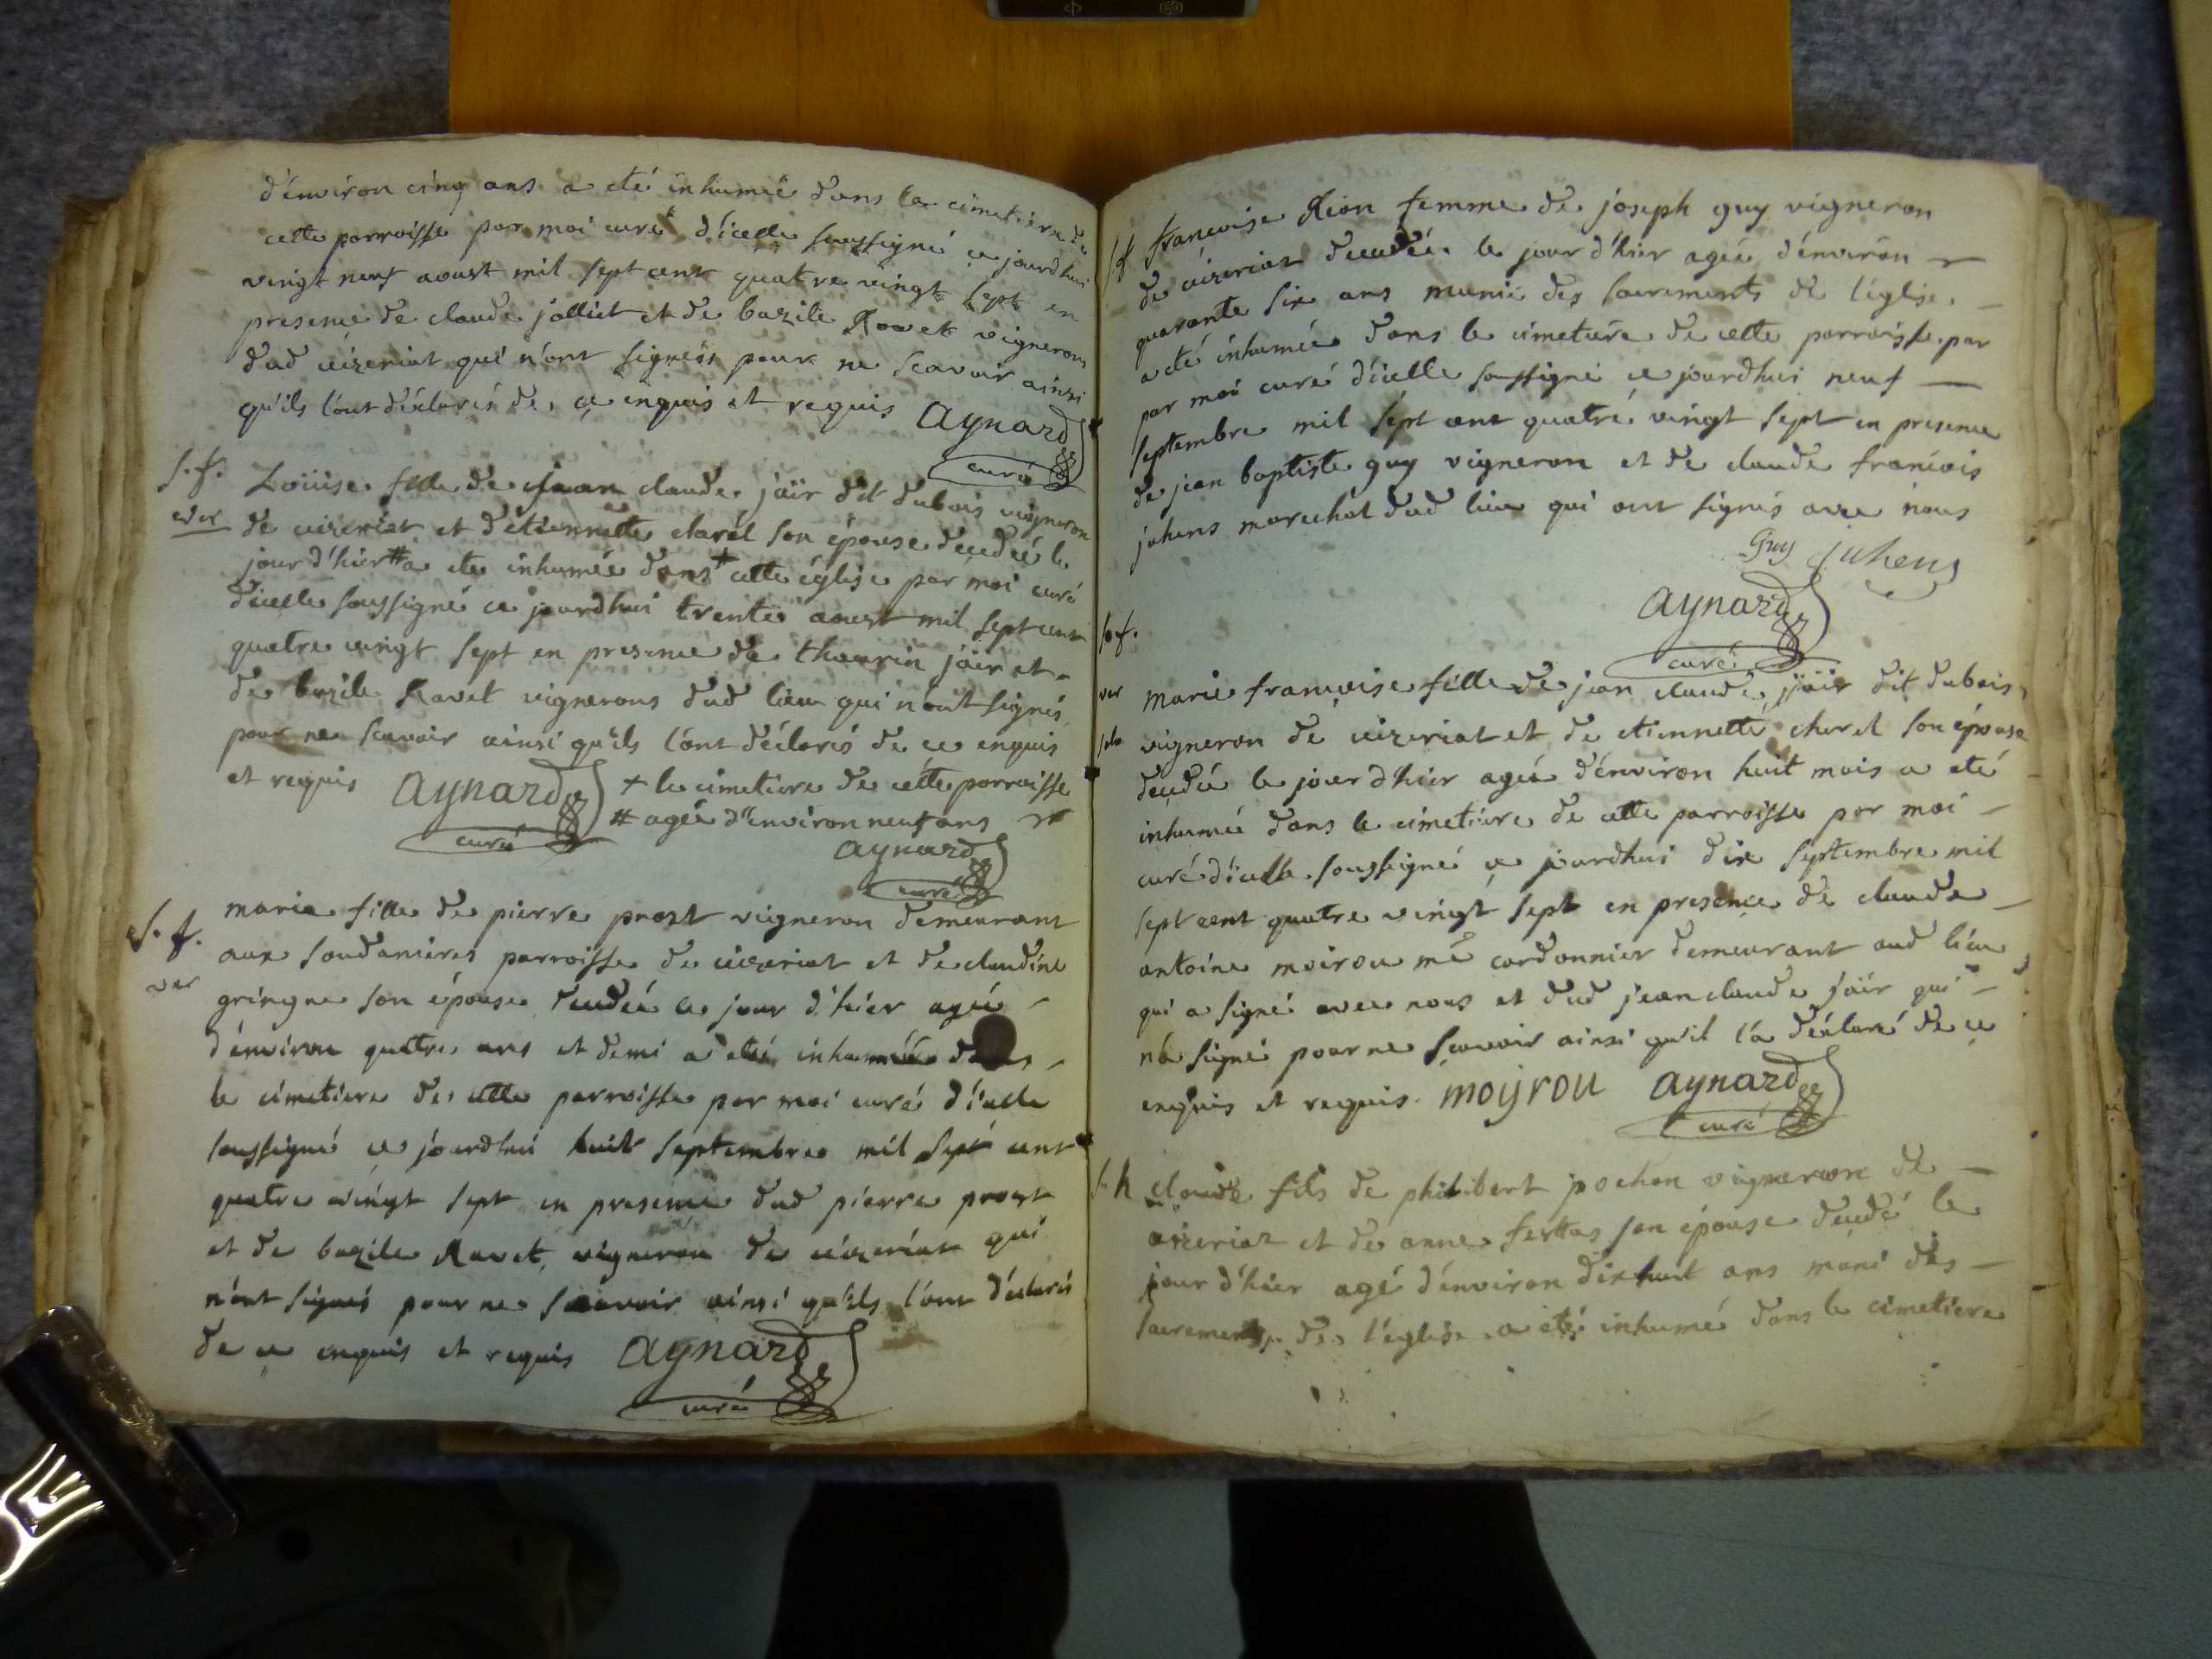 d'énviron cinq ans a eté inhumée dans le cimetiere de
cette parroisse par moi curé d'icelle soussigné ce jourdhui
vingt neuf aoust mil sept cent quatre vingt sept en
presence de claude jolliet et de bazile Ravet vignerons
dud ceizeriat qui n'ont signés pour ne scavoir ainsi
qu'ils l'ont déclarés de ce enquis et requis Aynard
curé
s. f. Loüise fille de jean claude jaïr dit dubois vigneron
ver de ceizeriat et d'étiennette clarel son épouse décedée le
jour d'hier # a eté inhumée dans + cette église par moi curé
d'icelle soussigné ce jourdhui trente aoust mil sept cent
quatre vingt sept en presence de thaurin jaïr et
de bazile Ravet vignerons dud lieu qui n'ont signés
pour ne scavoir ainsi qu'ils l'ont déclarés de ce enquis
et requis Aynard + le cimetiere de cette parroisse
curé # agée d'environ neuf ans
Aynard
curé
s. f. marie fille de pierre prost vigneron demeurant
aux soudanieres parroisse de ceizeriat et de claudine
ver gringne son épouse décedée le jour d'hier agée
d'énviron quatre ans et demi a eté inhumée dans
le cimetiere de cette parroisse par moi curé d'icelle
soussigné ce jourdhui huit septembre mil sept cent
quatre vingt sept en presence dud pierre prost
et de bazile Ravet vigneron de ceizeriat qui
n'ont signés pour ne scavoir ainsi qu'ils l'ont déclarés
de ce enquis et requis Aynard
curé
s. f francoise Rion femme de joseph guy vigneron
de ceizeriat decedée le jour d'hier agée d'énviron
quarante six ans munie des sacrements de l'église
a eté inhumée dans le cimetiere de cette parroisse par
par moi curé d'icelle soussigné ce jourdhui neuf
septembre mil sept cent quatre vingt sept en presence
de jean baptiste guy vigneron et de claude francois
juhens marechal dud lieu qui ont signés avec nous
Guy juhens
Aynard
curé
s. f.
ver marie francoise fille de jean claude jaïr dit dubois
vigneron de ceizeriat et de etiennette clarel son épouse
decedée le jour d'hier agée d'énviron huit mois a eté
inhumée dans le cimetiere de cette parroisse par moi
curé d'icelle soussigné ce jourdhui dix septembre mil
sept cent quatre vingt sept en presence de claude
antoine moirou mé cordonnier demeurant aud lieu
qui a signé avec nous et dud jean claude jaïr qui
n'a signé pour ne scavoir ainsi qu'il l'a déclaré de ce
enquis et requis. moyrou Aynard
curé
s. h claude fils de philibert pochon vigneron de
ceizeriat et de anne ferttas son épouse decedé le
jour d'hier agé d'énviron dixhuit ans muni des
sacrements de l'église a eté inhumé dans le cimetiere